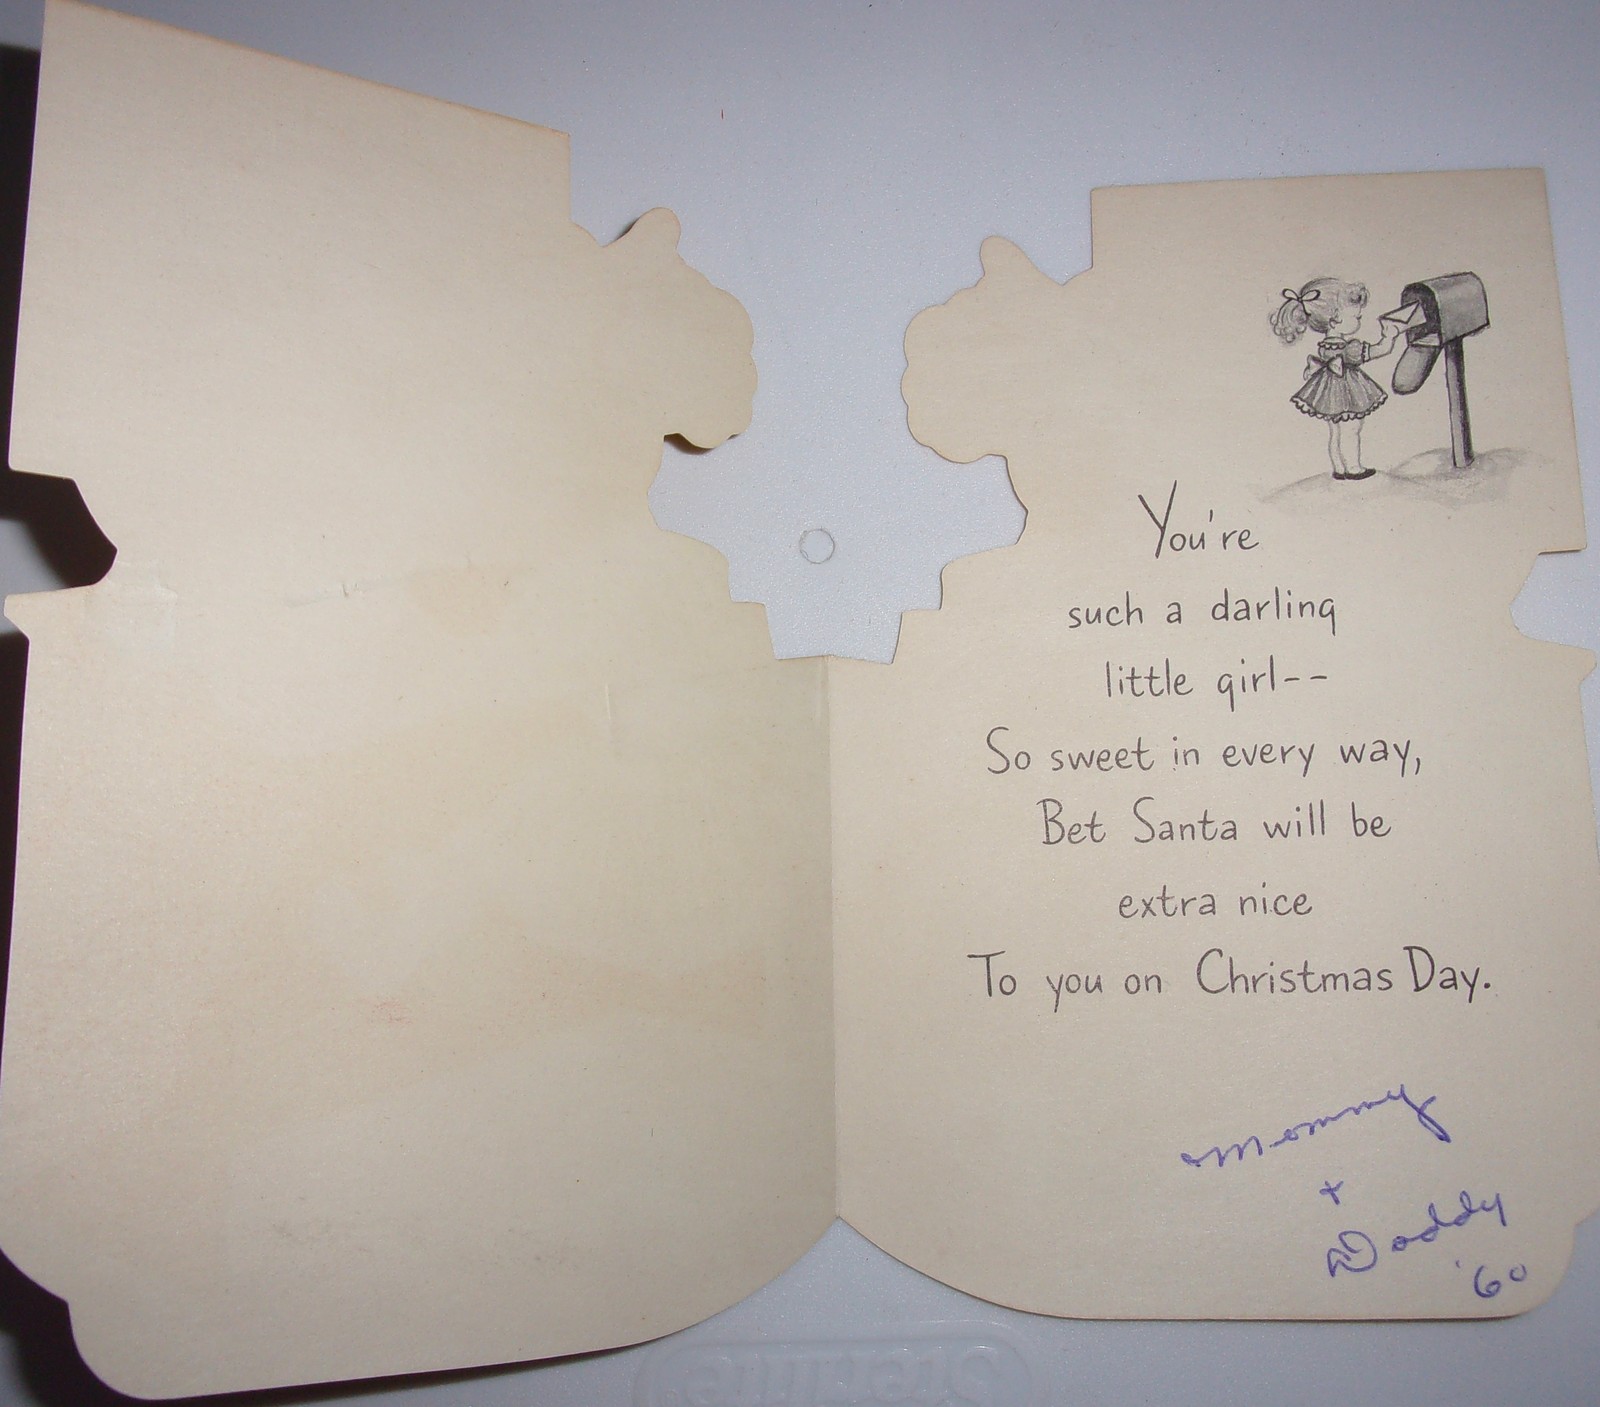 You're
such a darling
little girl--
So sweet in every way,
Bet Santa will be
extra nice
To you on Christmas Day.
Mommy
+
Daddy
'60
Sterilite